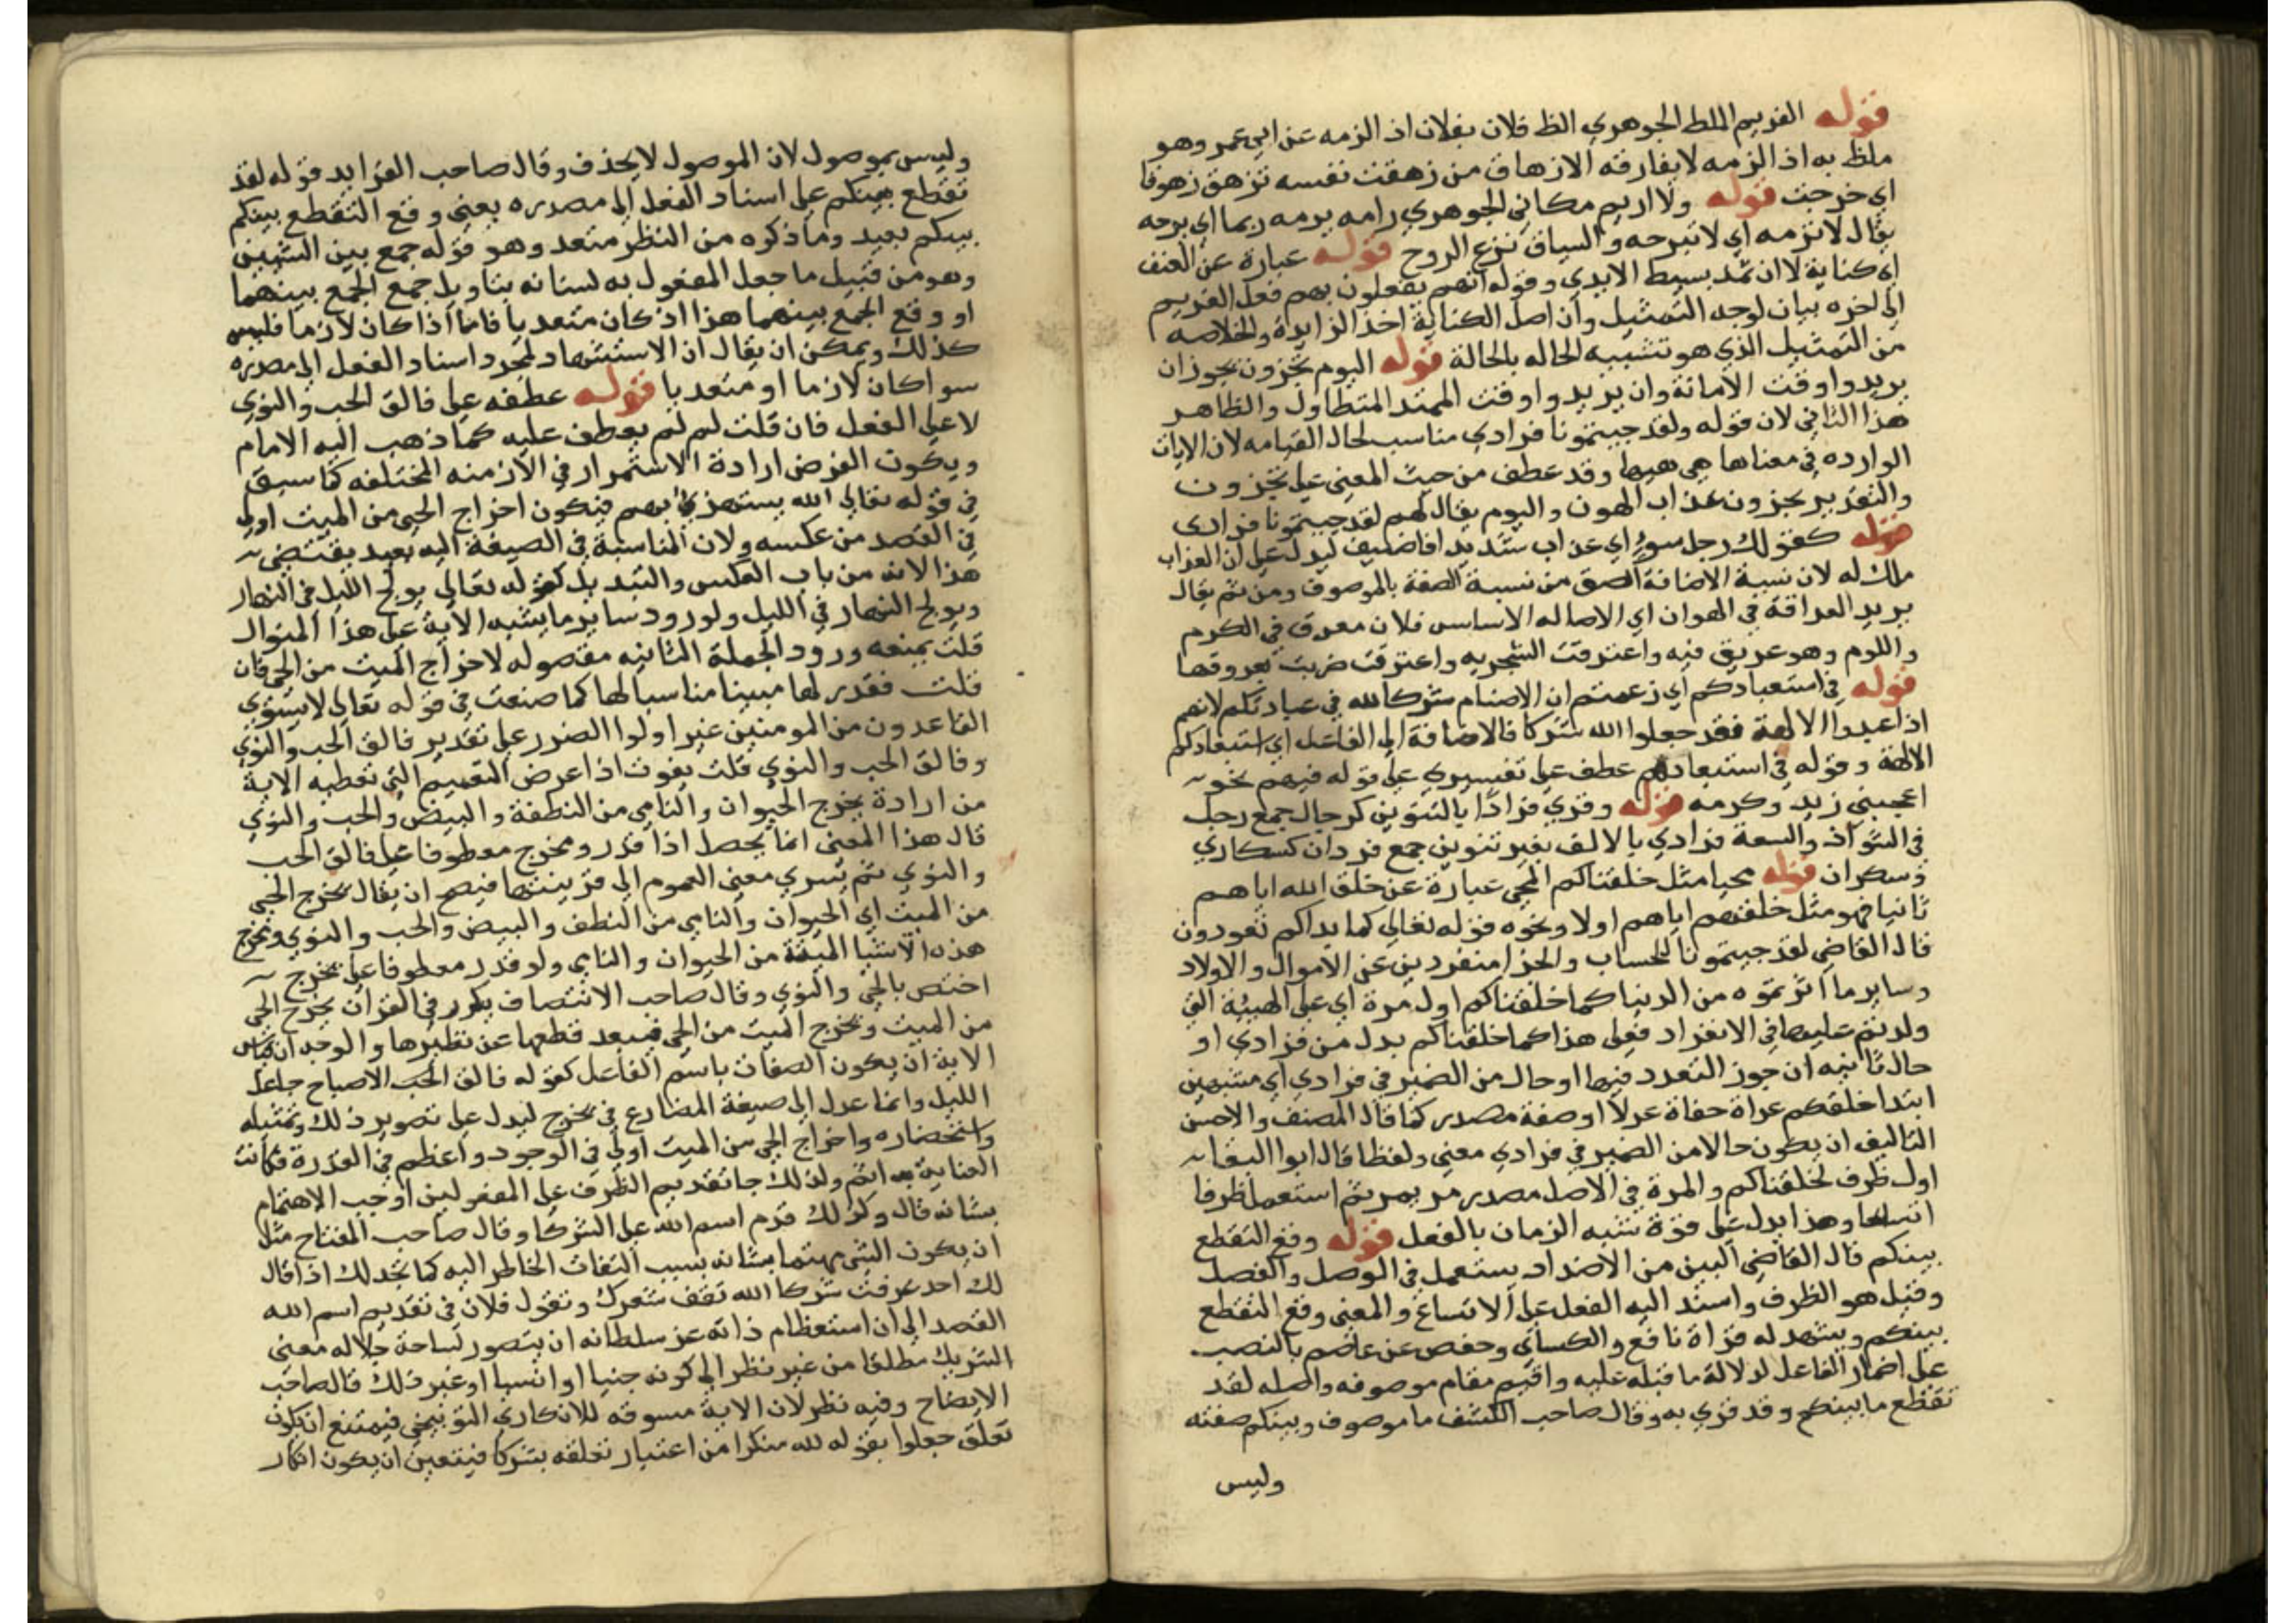 قوله الغريم الملط الجوهري الظ فلان بفلان اذ الزمه عن ابي عمر وهو
ملظ به اذ الزمه لا يفارقه الازهاق من زهقت نفسه تزهق زهوقا
اي خرجت قوله ولا اريم مكاني الجوهري رامه يرمه ريما اي برحه
يقال لا ترمه اي لا تبرحه والسياق نزع الروح قوله عبارة عن العنف
اي كناية لا ان ثمد بسيط الايدي وقوله انهم يفعلون بهم فعل الغريم
الى اخره بيان لوجه التمثيل وان اصل الكناية اخذ الزايدة والخلاصه
من التمثيل الذي هو تشبيه الحاله بالحالة قوله اليوم تجزون يجوز ان
يريدوا وقت الاماتة وان يريدوا وقت الممتد المتطاول والظاهر
هذا الثاني لان قوله ولقد جيتمونا فرادي مناسب لحال القيامه لان الايات
الوارده في معناها هي هيها وقد عطف من حيث المعنى على تجزون
والتقدير تجزون عذاب الهون واليوم يقال لهم لقد جيتمونا فرادى
قوله كقولك رجل سوء اي عذاب شديد افاضيف ليدل على ان العذاب
ملك له لان نسبة الاضافة الصق من نسبة الصفة بالموصوف ومن ثم يقال
يريد العراقة في الهوان اي الاصاله الاساس فلان معرق في الكرم
واللوم وهو عريق فيه واعترقت الشجريه واعترقت ضربت بعروقها
قوله في استعبادكم اي زعمتم ان الاصنام شركا لله في عبادتكم لانهم
اذا عبدوا الالهة فقد جعلوا لله شركا فالاضافة الى الفاعل اي استبعادكم
الالهة وقوله في استبعادهم عطف على تفسيري على قوله فيهم نحو
اعجبني زيد وكرمه قوله وقري فرادًا بالتنوين كرجال جمع رجل
في الشواذ والسعة فرادي بالالف بغير تنوين جمع فردان كسكاري
وسكران قوله مجيا مثل خلقناكم المجي عبارة عن خلق الله اياهم
ثانيا فهو مثل خلقهم اياهم اولا ونحوه قوله تعالى كما بداكم تعودون
قال القاضي لقد جيتمونا للحساب والجزا منفردين عن الاموال والاولاد
وساير ما اثرتموه من الدنيا كما خلقناكم اول مرة اي على الهيئة التي
ولدتم عليها في الانفراد فعلى هذا كما خلقناكم بدل من فرادي او
حال ثانيه ان جوز التعدد فيها او حال من الضمير في فرادي اي مشبهين
ابتدا خلقكم عراة حفاة غرلا او صفة مصدر كما قال المصنف والاحسن
التاليف ان يكون حالا من الضمير في فرادي معنى ولفظا قال ابوا البقا
اول ظرف لخلقناكم والمرة في الاصل مصدر مر يمر ثم استعمل ظرفا
اتساعا وهذا يدل على قوة شبه الزمان بالفعل قوله وقع التقطع
بينكم قال القاضي البين من الاضداد يستعمل في الوصل والفصل
وقيل هو الظرف واسند اليه الفعل على الاتساع والمعنى وقع التقطع
بينكم ويشهد له قراة نافع والكساي وحفص عن عاصم بالنصب
على اضمار الفاعل لدلالة ما قبله عليه واقيم مقام موصوفه واصله لقد
تقطع ما بينكم وقد قري به وقال صاحب الكشف ما موصوف وبينكم صفته
وليس
وليس بموصول لان الموصول لا يحذف وقال صاحب الفرايد قوله لقد
تقطع بينكم على اسناد الفعل الى مصدره بمعنى وقع التقطع بينكم
بينكم بعيد وما ذكره من النظر متعد وهو قوله جمع بين الشيين
وهو من قبيل ما جعل المفعول به لسانه بتاويل جمع الجمع بينهما
او وقع الجمع بينهما هذا اذ كان متعديا فاما اذا كان لازما فليس
كذلك ويمكن ان يقال ان الاستشهاد لمجرد اسناد الفعل الى مصدره
سوا كان لازما او متعديا قوله عطفه على فالق الحب والنوي
لا على الفعل فان قلت لم لم يعطف عليه كما ذهب اليه الامام
ويكون الغرض ارادة الاستمرار في الازمنه المختلفه كما سبق
في قوله تعالي الله يستهزئ بهم فيكون اخراج الحي من الميت اولى
في القصد من عكسه ولان المناسبة في الصيغة اليه بعيد يقتضي
هذا لانه من باب العكس والتبديل كقوله تعالي يولج الليل في النهار
ويولج النهار في الليل ولورود ساير ما يشبه الاية على هذا المنوال
قلت يمنعه ورود الجملة الثانيه مفصوله لاخراج الميت من الحي فان
قلت فقدر لها مبينا مناسبا لها كما صنعت في قوله تعالى لا يستوي
القاعدون من المومنين غير اولوا الضرر على تقدير فالق الحب والنوي
وفالق الحب والنوي قلت يفوت اذا عرض التقسيم التي تعطيه الاية
من ارادة يخرج الحيوان والنامي من النطفة والبيض والحب والنوي
قال هذا المعنى انما يحصل اذا قدر ومخرج معطوفا على فالق الحب
والنوي ثم يسري معنى العموم الى قرينتها فيصح ان يقال يخرج الحي
من الميت اي الحيوان والنامي من النطف والبيض والحب والنوي ومخرج
هذه الاشيا الميتة من الحيوان والنامي ولو قدر معطوفا على يخرج
اختص بالحي والنوي وقال صاحب الانتصاف يكرر في القران يخرج الحي
من الميت ومخرج الميت من الحي فيبعد قطعها عن نظيرها والوجه ان قياس
الاية ان يكون الصفات باسم الفاعل كقوله فالق الحب الاصباح جاعل
الليل وانما عدل الى صيغة المضارع في يخرج ليدل على تصوير ذلك وتمثيله
واستحضاره واخراج الحي من الميت اولى في الوجود واعظم في القدرة فكانت
العناية به اتم ولذلك جا تقديم الظرف على المفعولين اوجب الاهتمام
بشانه قال وكذلك قدم اسم الله على الشركا وقال صاحب المفتاح مثل
ان يكون الشي مهتما بشانه بسبب التفات الخاطر اليه كما تجد لك اذا قال
لك احد عرفت شركا الله تقف شعرك وتقول فلان في تقديم اسم الله
القصد الى ان استعظام ذاته عز سلطانه ان يتصور لساحة جلاله معنى
الشريك مطلقا من غير نظر الى كونه جنيا او انسيا او غير ذلك قال صاحب
الايضاح وفيه نظر لان الاية مسوقه للانكاري التوبيخي فيمتنع ان يكون
تعلق جعلوا بقوله لله منكرا من اعتبار تعلقه بشركا فيتعين ان يكون انكار